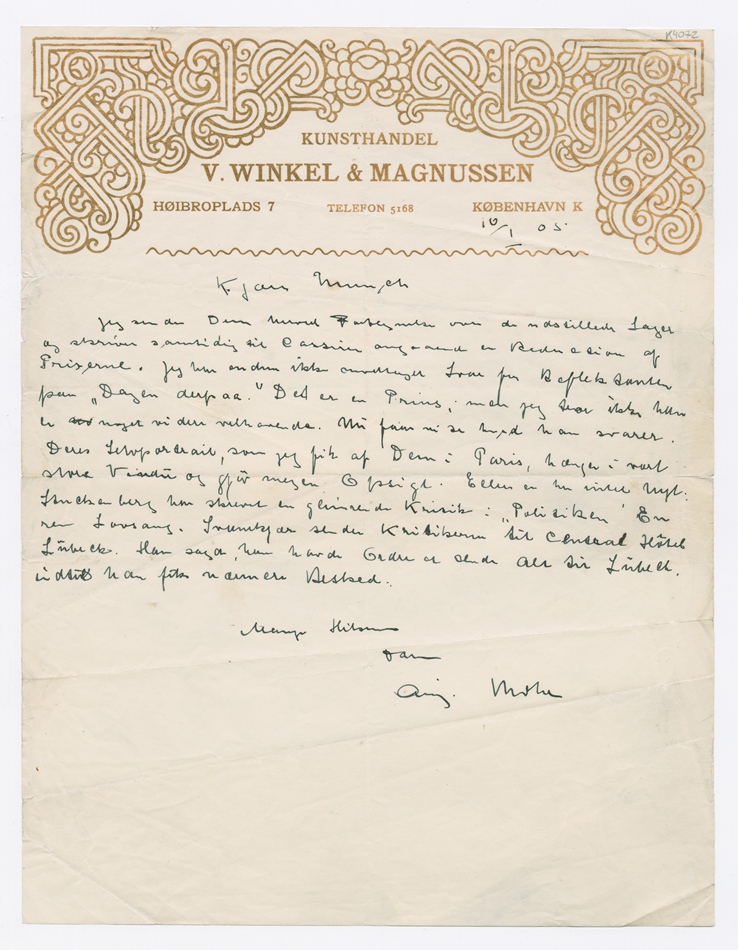 K4072
KUNSTHANDEL
V. WINKEL & MAGNUSSEN
HØIBROPLADS 7 TELEFON 5168 KØBENHAVN K
10/I 05
Kjære Munch
Jeg sender Dem hermed Fortegnelse over de udstillede Sager
og skriver samtidig til Cassirer angaaende en Reduction af
Priserne. Jeg har endnu ikke modtaget Svar fra Reflektanten
paa „Dagen derpaa." Det er en Prins, men jeg tror ikke han
er noget videre velhavende. Nu faar vi se hvad han svarer.
Deres Selvportrait, som jeg fik af Dem i Paris, hænger i vort
store Vindu og gjør megen Opsigt. Ellers er her intet Nyt.
Stuckenberg har skrevet en glimrende Kritik i „Politiken" En
ren Lovsang. sender Kritikerne til Central Hôtel
Lübeck. Han sagde, han havde Ordre at sende Alt til Lübeck,
indtil han fik nærmere Besked.
Mange Hilsner
Deres